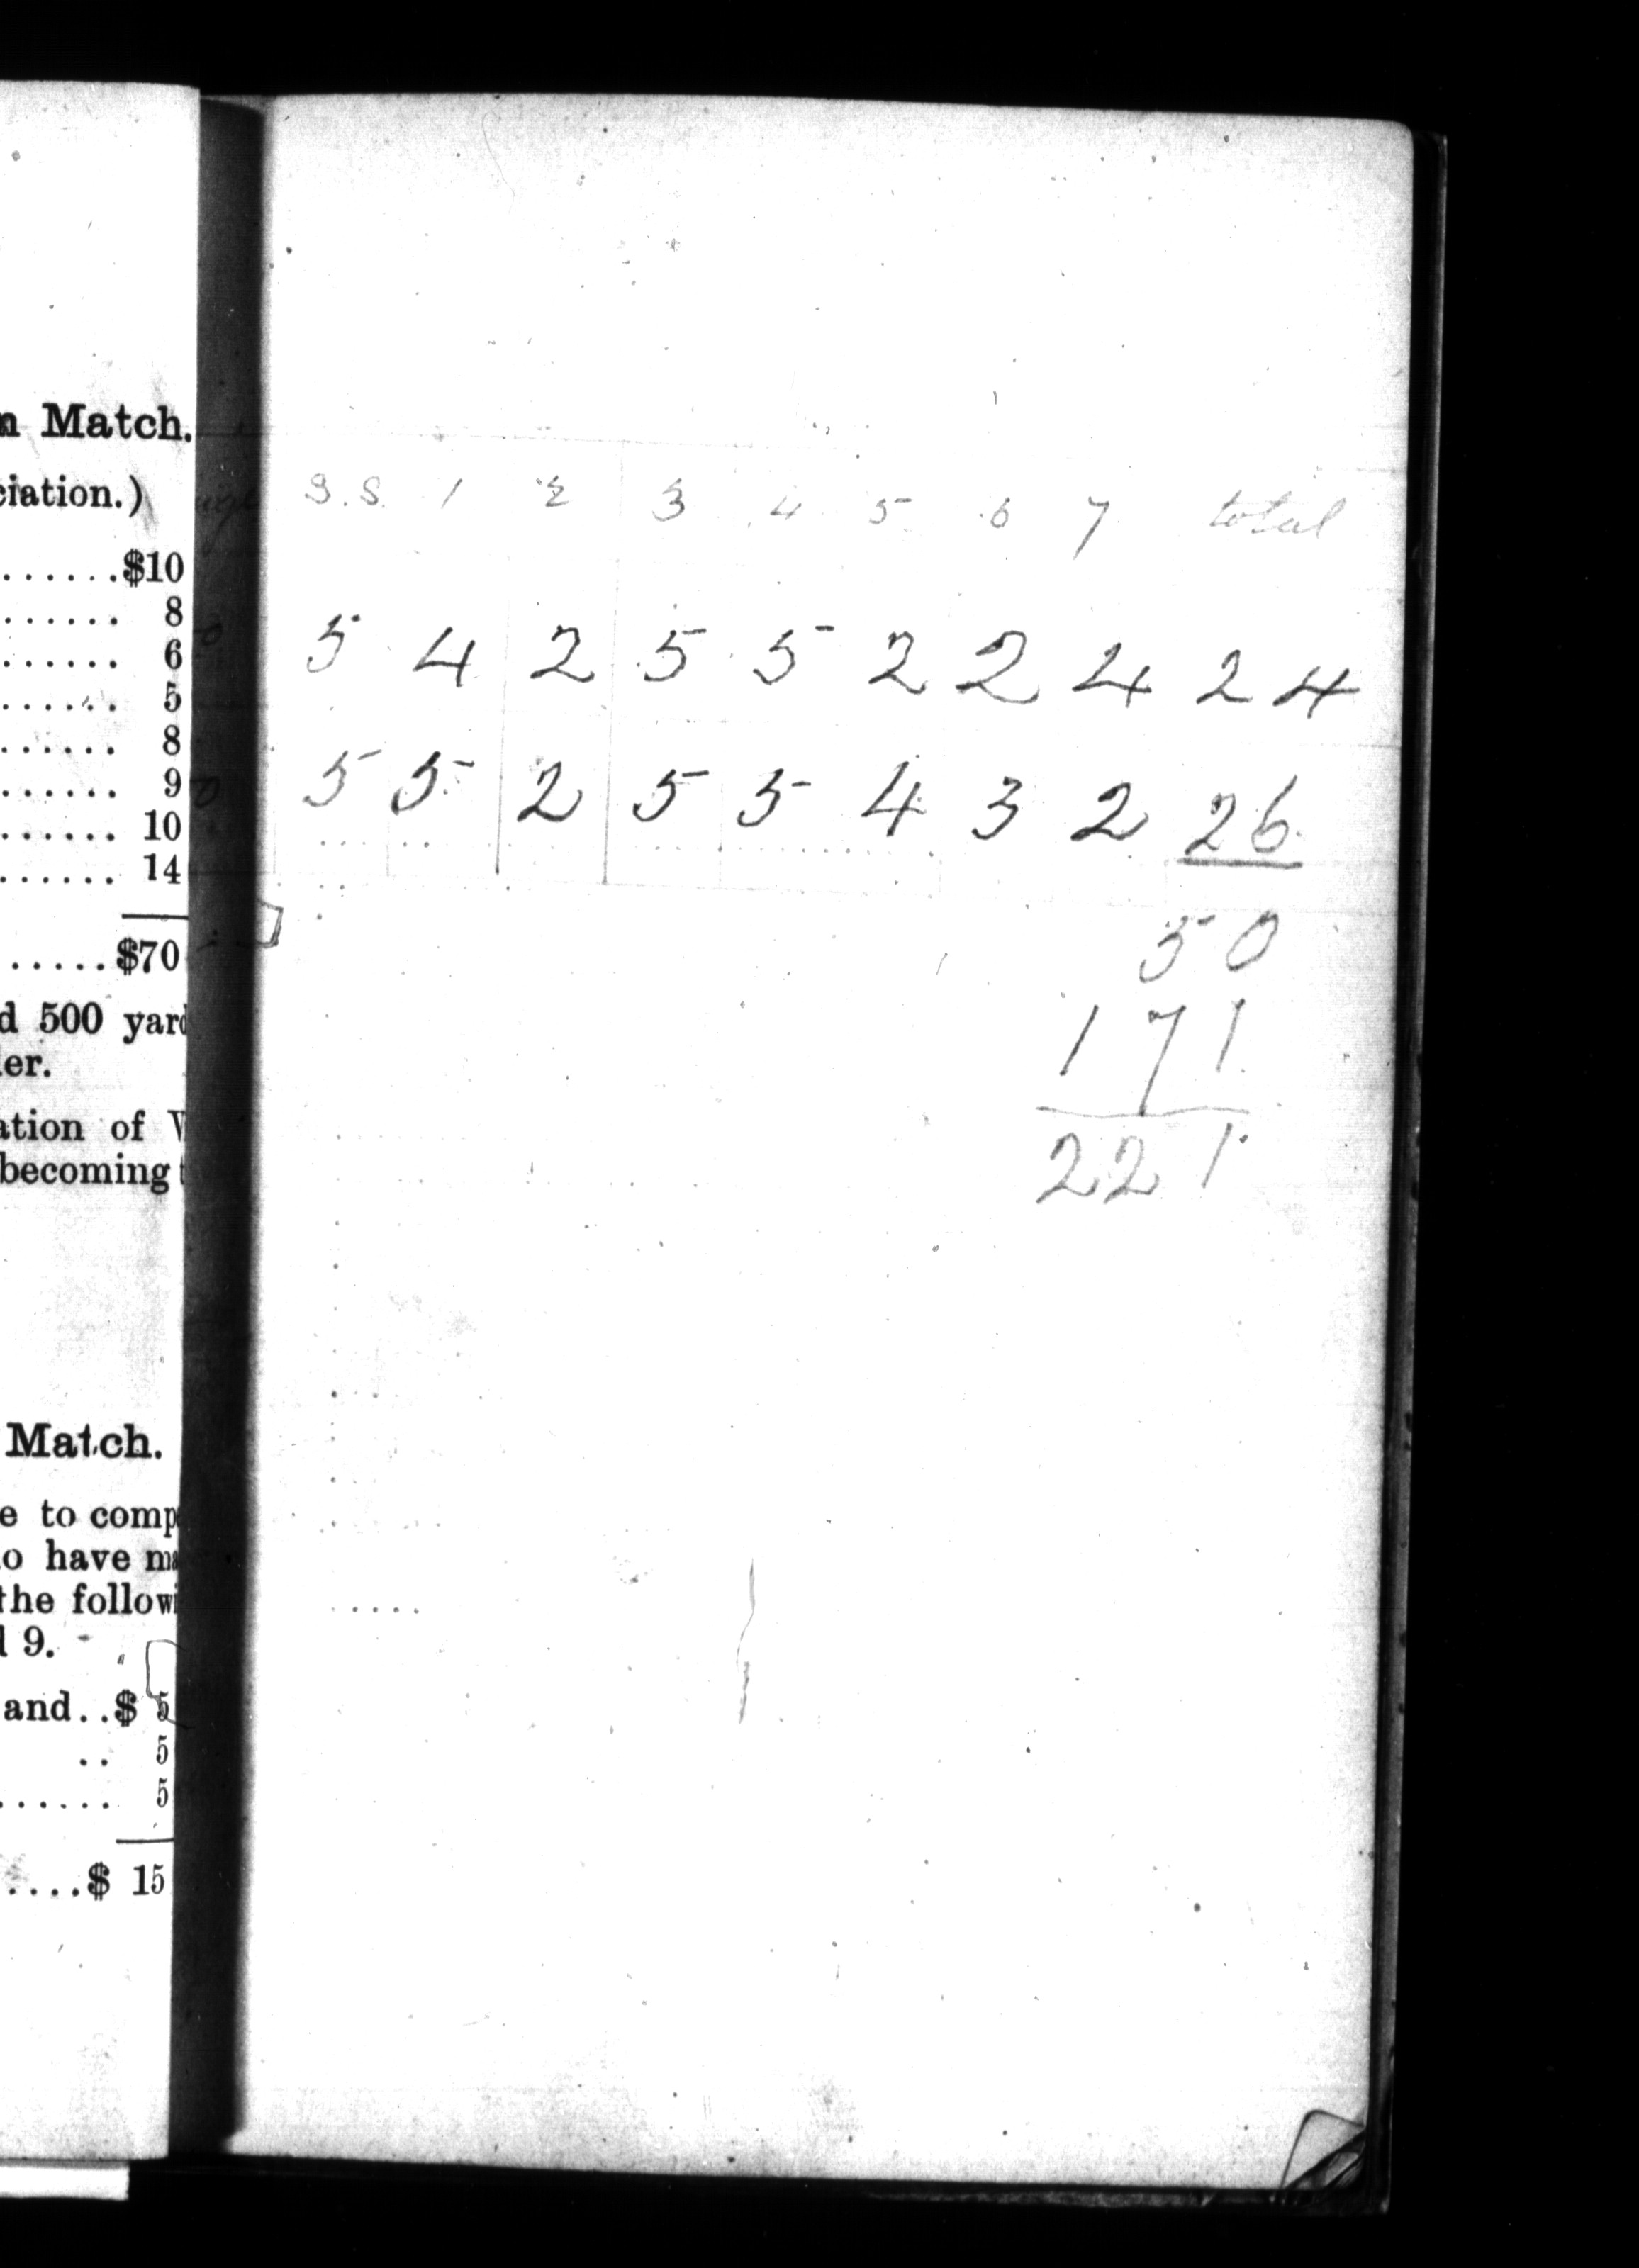 Match.
ciation.)
......$10
...... 8
...... 6
...... 5
...... 8
...... 9
...... 10
...... 14
.....$70
d 500 yard
er.
ation of
becoming
Match.
e to comp
o have ma
the followi
9.
and..$ 5
.. 5
...... 5
....$ 15
S.S. 1 2 3 4 5 6 7 total
5 4 2 5 5 2 2 4 24
5 5 2 5 5 4 3 2 26
50
171
221